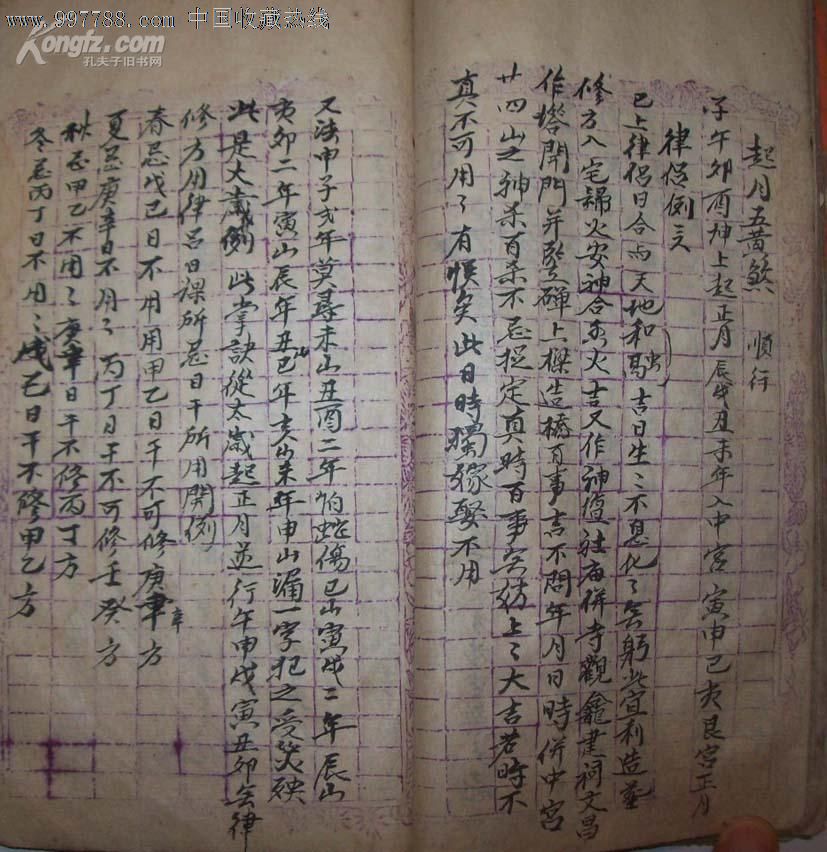 www.997788.com 中国收藏热线
Kongfz.com
孔夫子旧书网
起月五黄煞 順行
子午卯酉坤上起正月 辰戌丑未年入中宮 寅申巳亥艮宮正月
律侣例
已上律侣日合而天地和融吉日生〻不息化〻無躬此宜利造葬
修方入宅歸火安神合香火吉又作神壇社庙併寺觀龕建祠文昌
作塔開門并竪碑上樑造橋百事吉不問年月日時併中宮
廿四山之神杀百杀不忌捉定真時百事無妨上〻大吉若時不
真不可用〻有悞矣此日時獨嫁娶不用
又法申子弍年莫尋未山丑酉二年怕蛇傷巳山寅戌二年辰山
亥卯二年寅山辰年丑巳年亥山未年申山漏一字犯之受災殃
此是大歳例此掌訣從太歲起正月逆行午申戌寅丑卯無律
修方用律呂日課所忌日干所用開例
春忌戊己日不用用甲乙日干不可修庚辛方
夏忌庚辛日不用〻丙丁日干不可修壬癸方
秋忌甲乙不用〻庚辛日干不修丙丁方
冬忌丙丁日不用〻戊己日干不修甲乙方